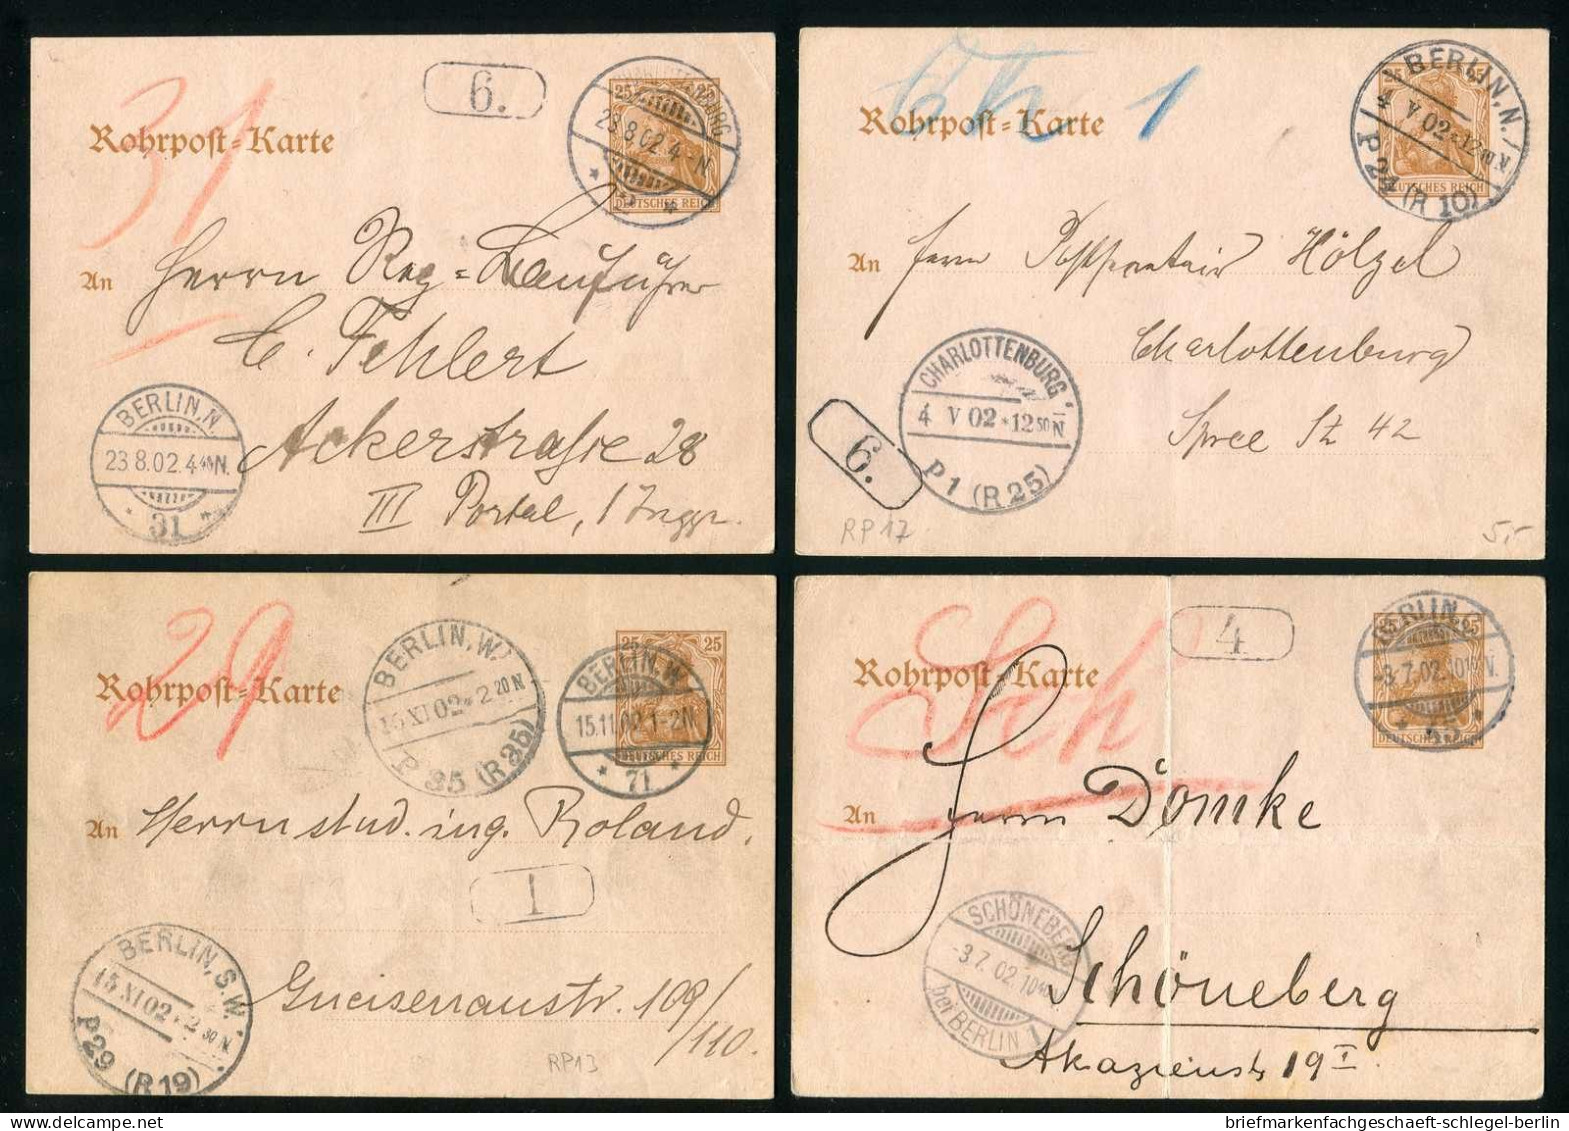 31
6.
Rohrpost-Karte
25
DEUTSCHES REICH
23.8.02.4-N
An Herrn Reg-Bauführer
C. Fehlert
Ackerstraße 28
III Portal, 1
BERLIN, N.
23 8.02.4 N.
31
1
Rohrpost-Karte
BERLIN, N.
4 V 02 12 N
P 24 (R 10)
DEUTSCHES REICH
An Herrn Postsecretair Hölzel
Charlottenburg
Spree St 42
CHARLOTTENBURG
4 V 02 12 50 N
P 1 (R 25)
6.
RP 17
5,-
29
Rohrpost-Karte
BERLIN, W.
15 XI 02 2 20 N
P 35 (R 35)
25 25
BERLIN, W.
15.11.02.1-2N.
71
DEUTSCHES REICH
An Herrn stud. ing. Roland.
1
Gneisenaustr. 109/
/110.
BERLIN, S.W.
15 XI 02 2 30 N
P 29 (R 19)
RP13
Sch
4
Rohrpost-Karte
BERLIN
25
-3.7.02.10 N.
DEUTSCHES REICH
An Herrn Domke
Schöneberg
Akazienstr 19 I
SCHÖNEBERG
-3.7.02.10
bei BERLIN 1
briefmarkenfachgeschaeft-schlegel-berlin